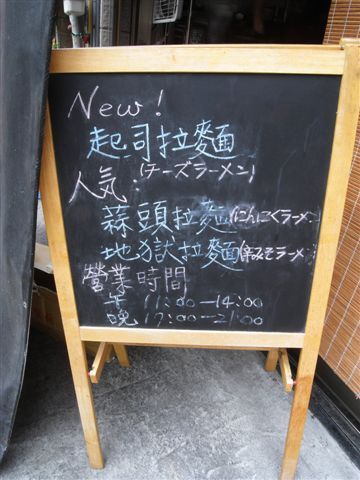 New!
起司拉麵
(チーズラーメン)
人気:
蒜頭拉麵(にんにくラーメン
地獄拉麵(辛みそラーメン
營業時間
午 11:00—14:00
晚 17:00—21:00